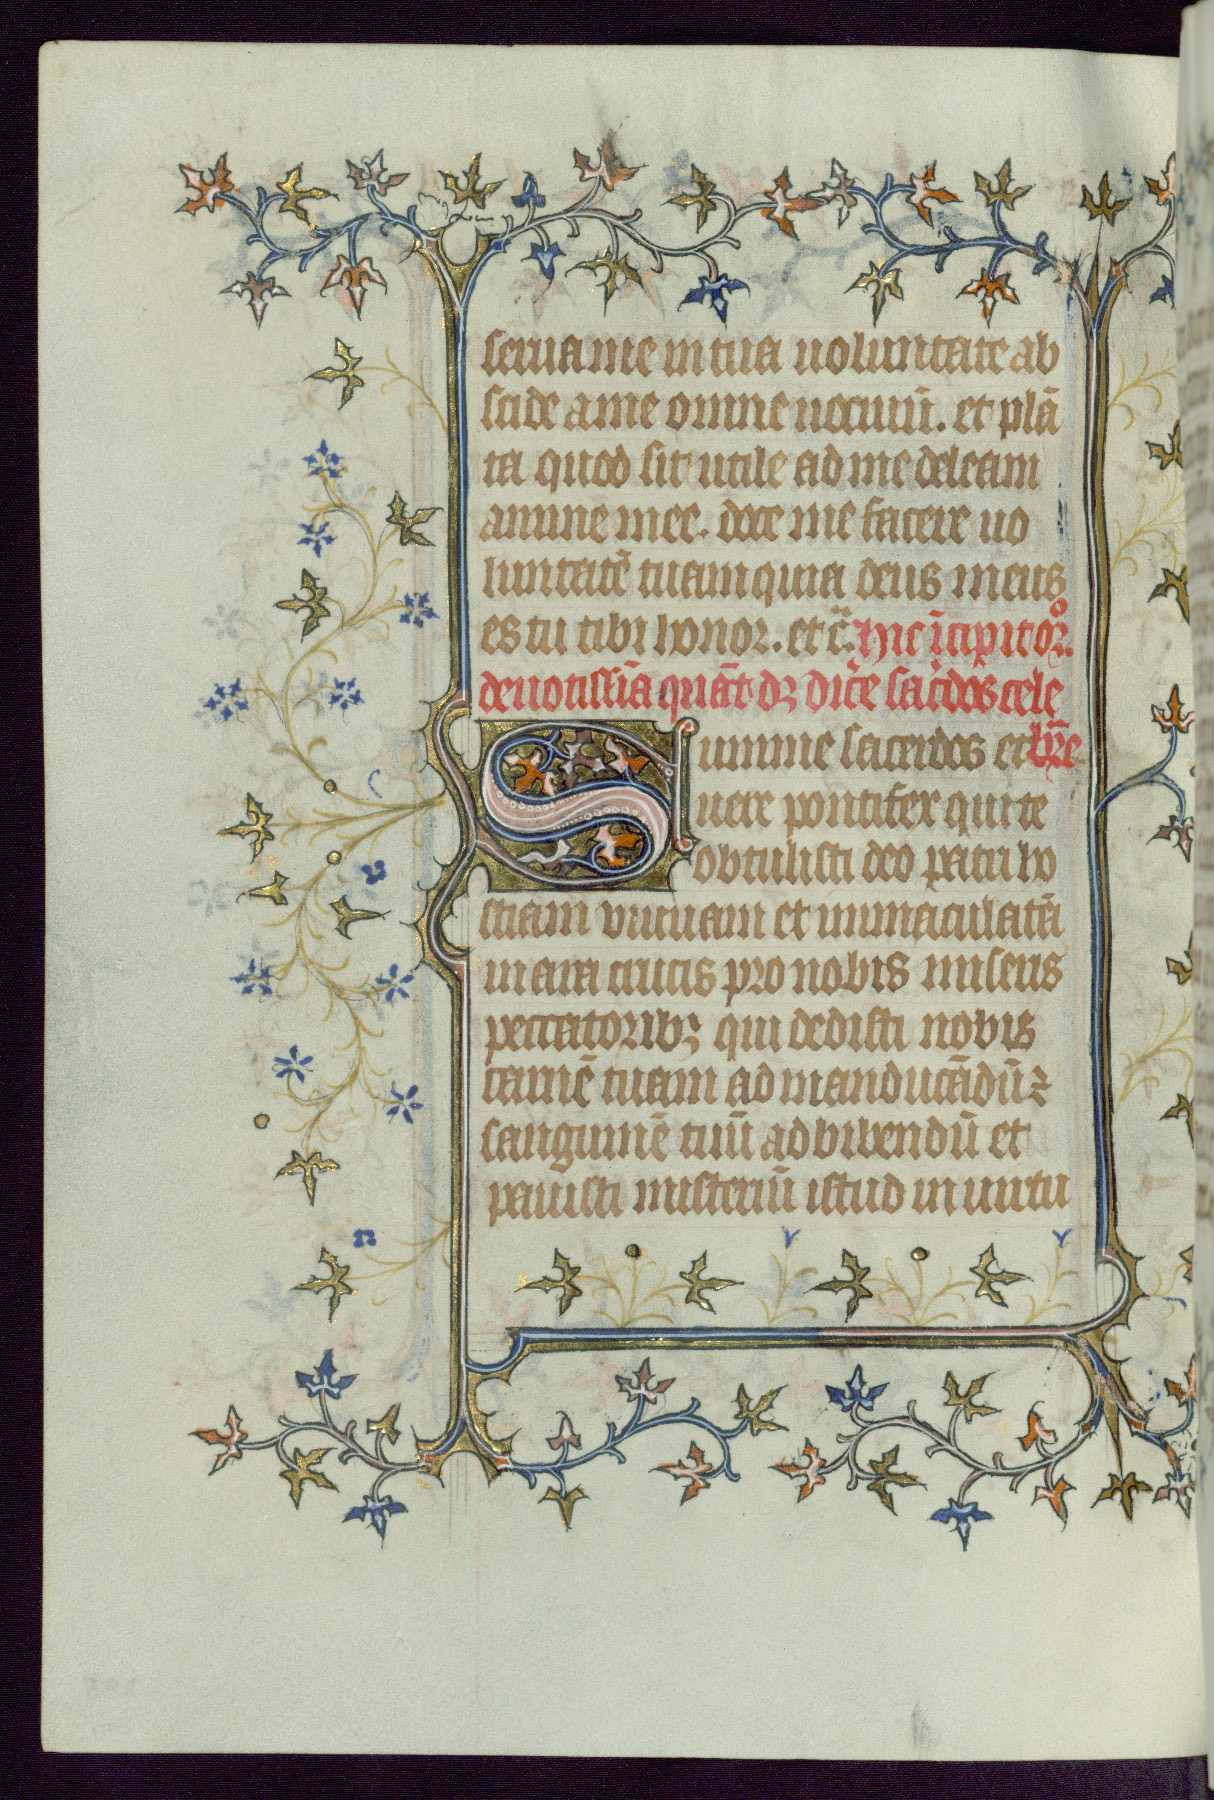 serua me in tua uoluntate ab
scide a me omne nociuū. et plā
ta quod sit utile ad medelam
anime mee. doce me facere uo
luntatē tuam quia deus meus
es tu tibi honor. et c̄. hic īcipit or̄o
deuotissīa quā dꝫ dic̄e sac̄dos cele
br̄e
umme sacerdos et
uere pontifex qui te
obtulisti deo patri ho
stiam viuam et immaculatā
in ara crucis pro nobis miseris
peccatoribꝫ qui dedisti nobis
carnē tuam ad manducādū ⁊
sanguinē tuū ad bibendū et
pauisti misteriū istud in uirtu